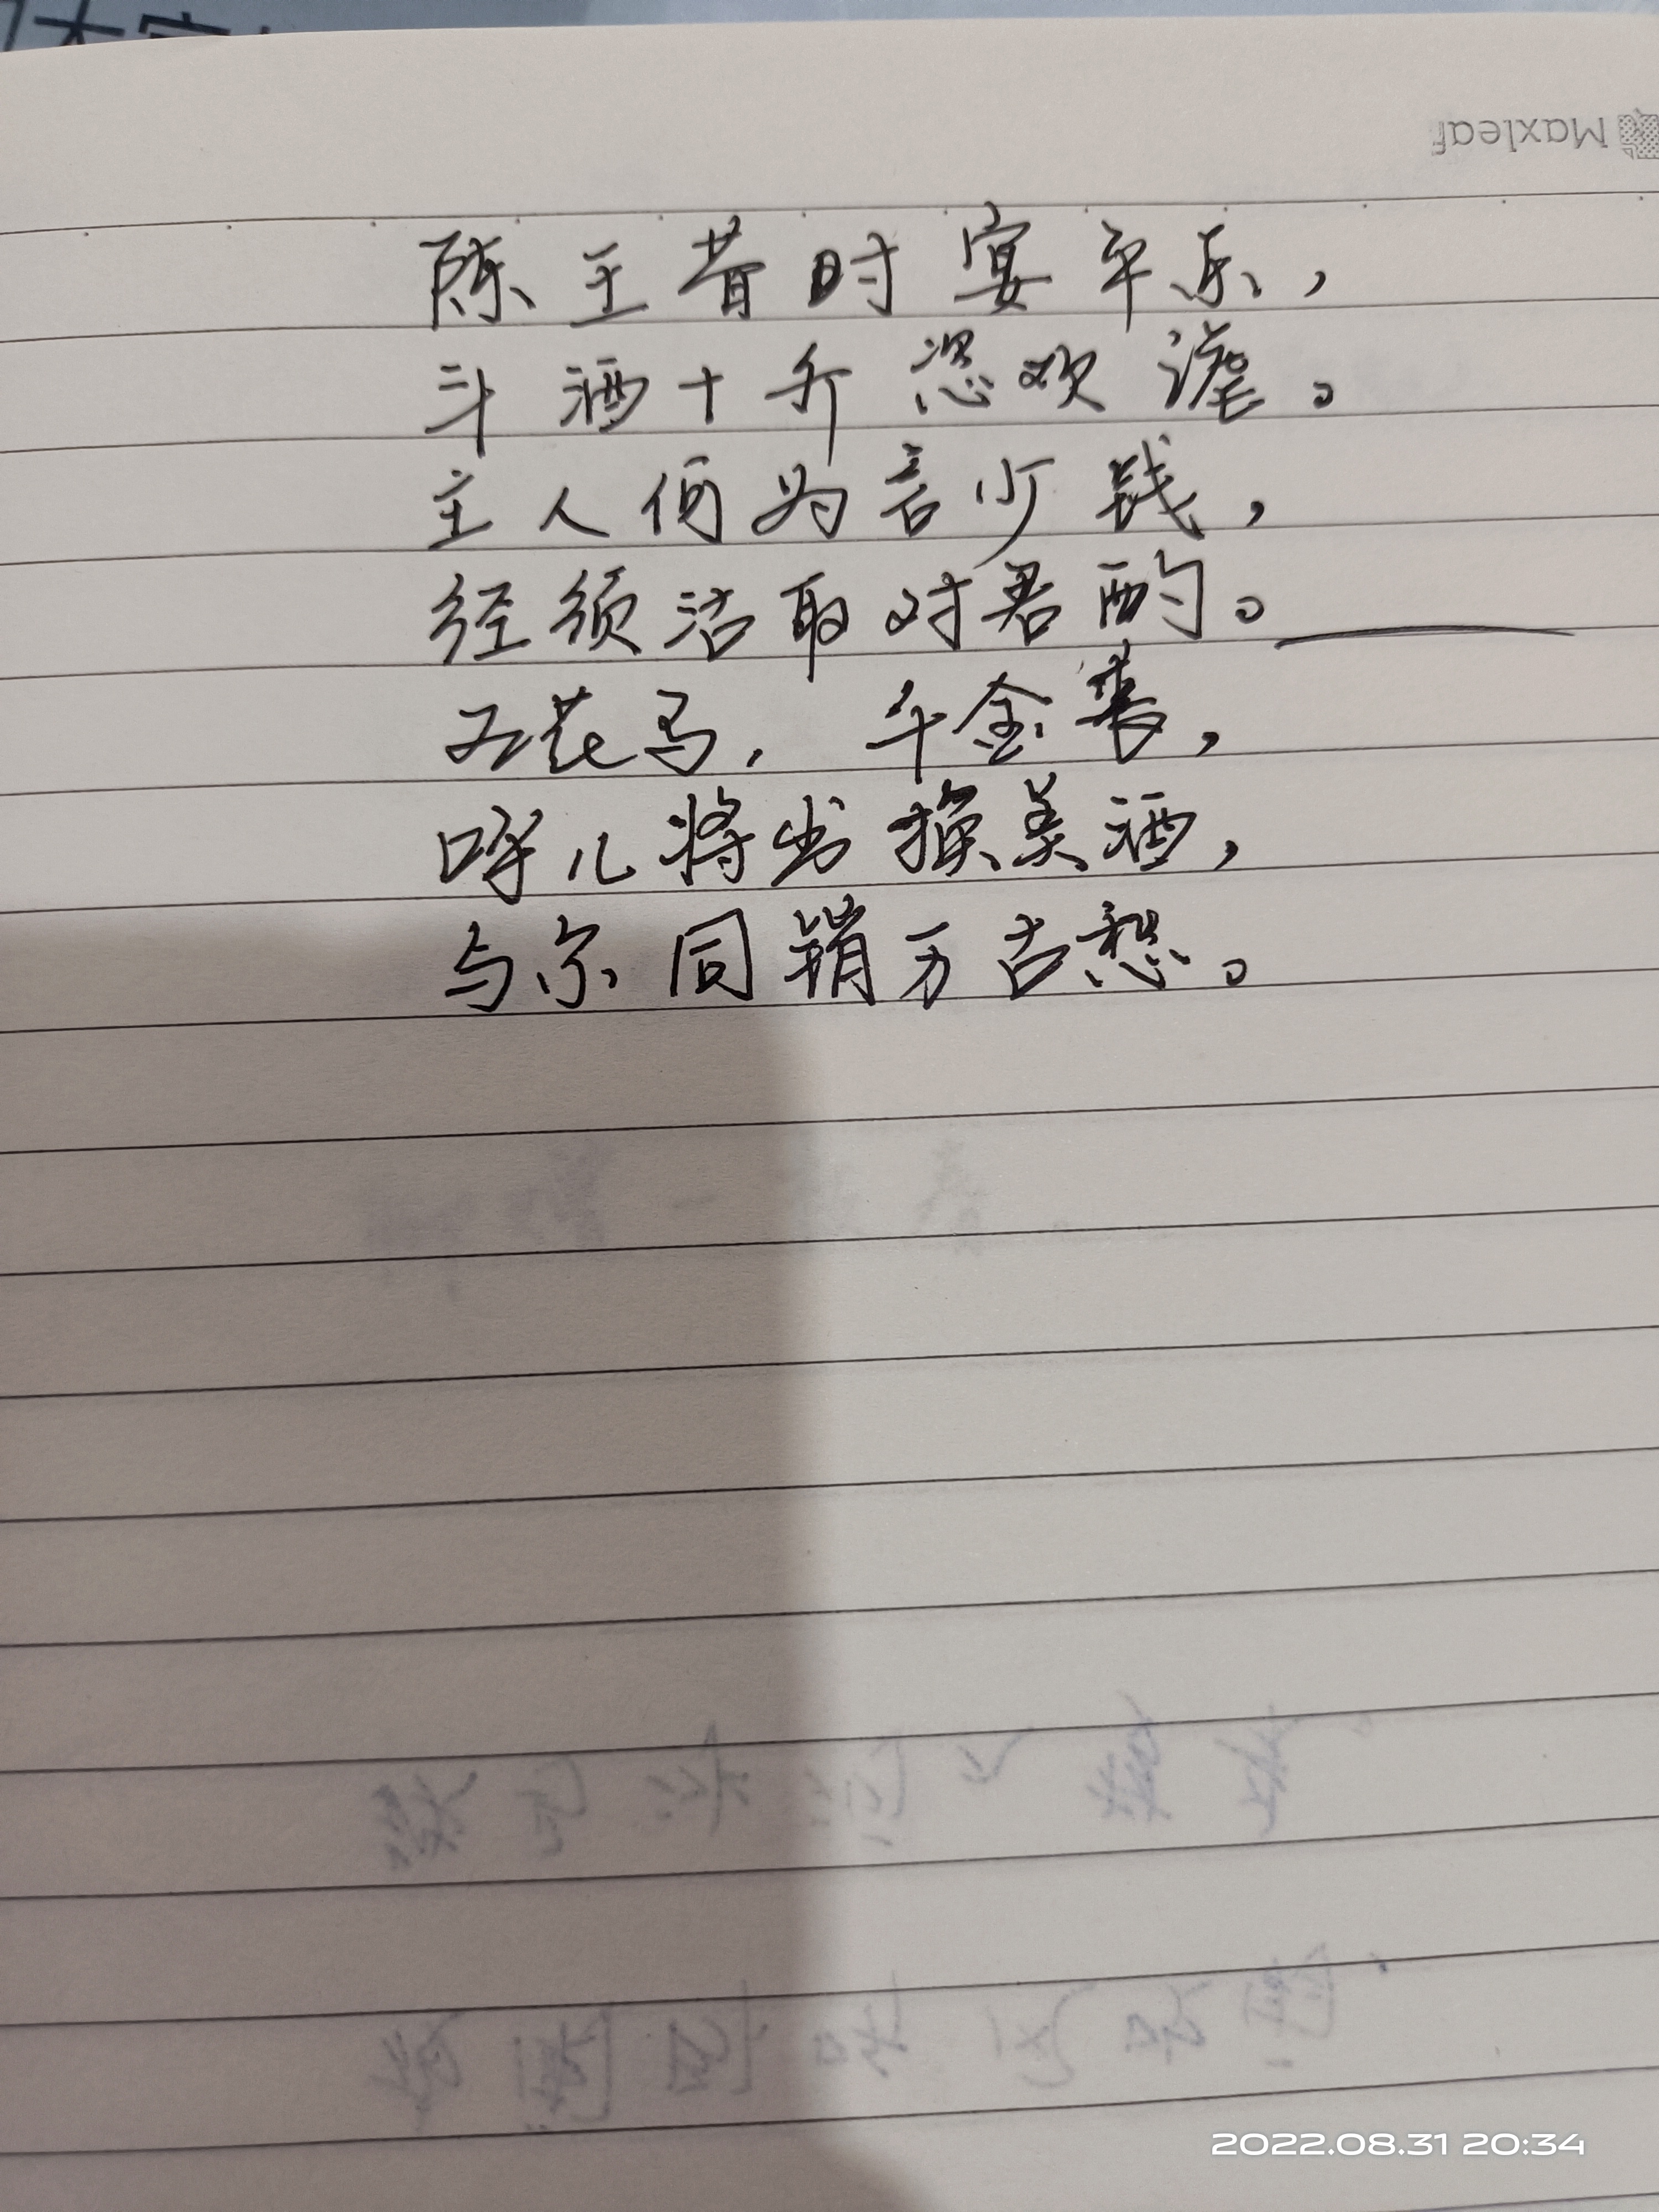 Maxleaf
陈王昔时宴平乐，
斗酒十升恣欢谑。
主人何为言少钱，
经须沽取对君酌。
五花马，千金裘，
呼儿将出换美酒，
与尔同销万古愁。
2022.08.31 20:34